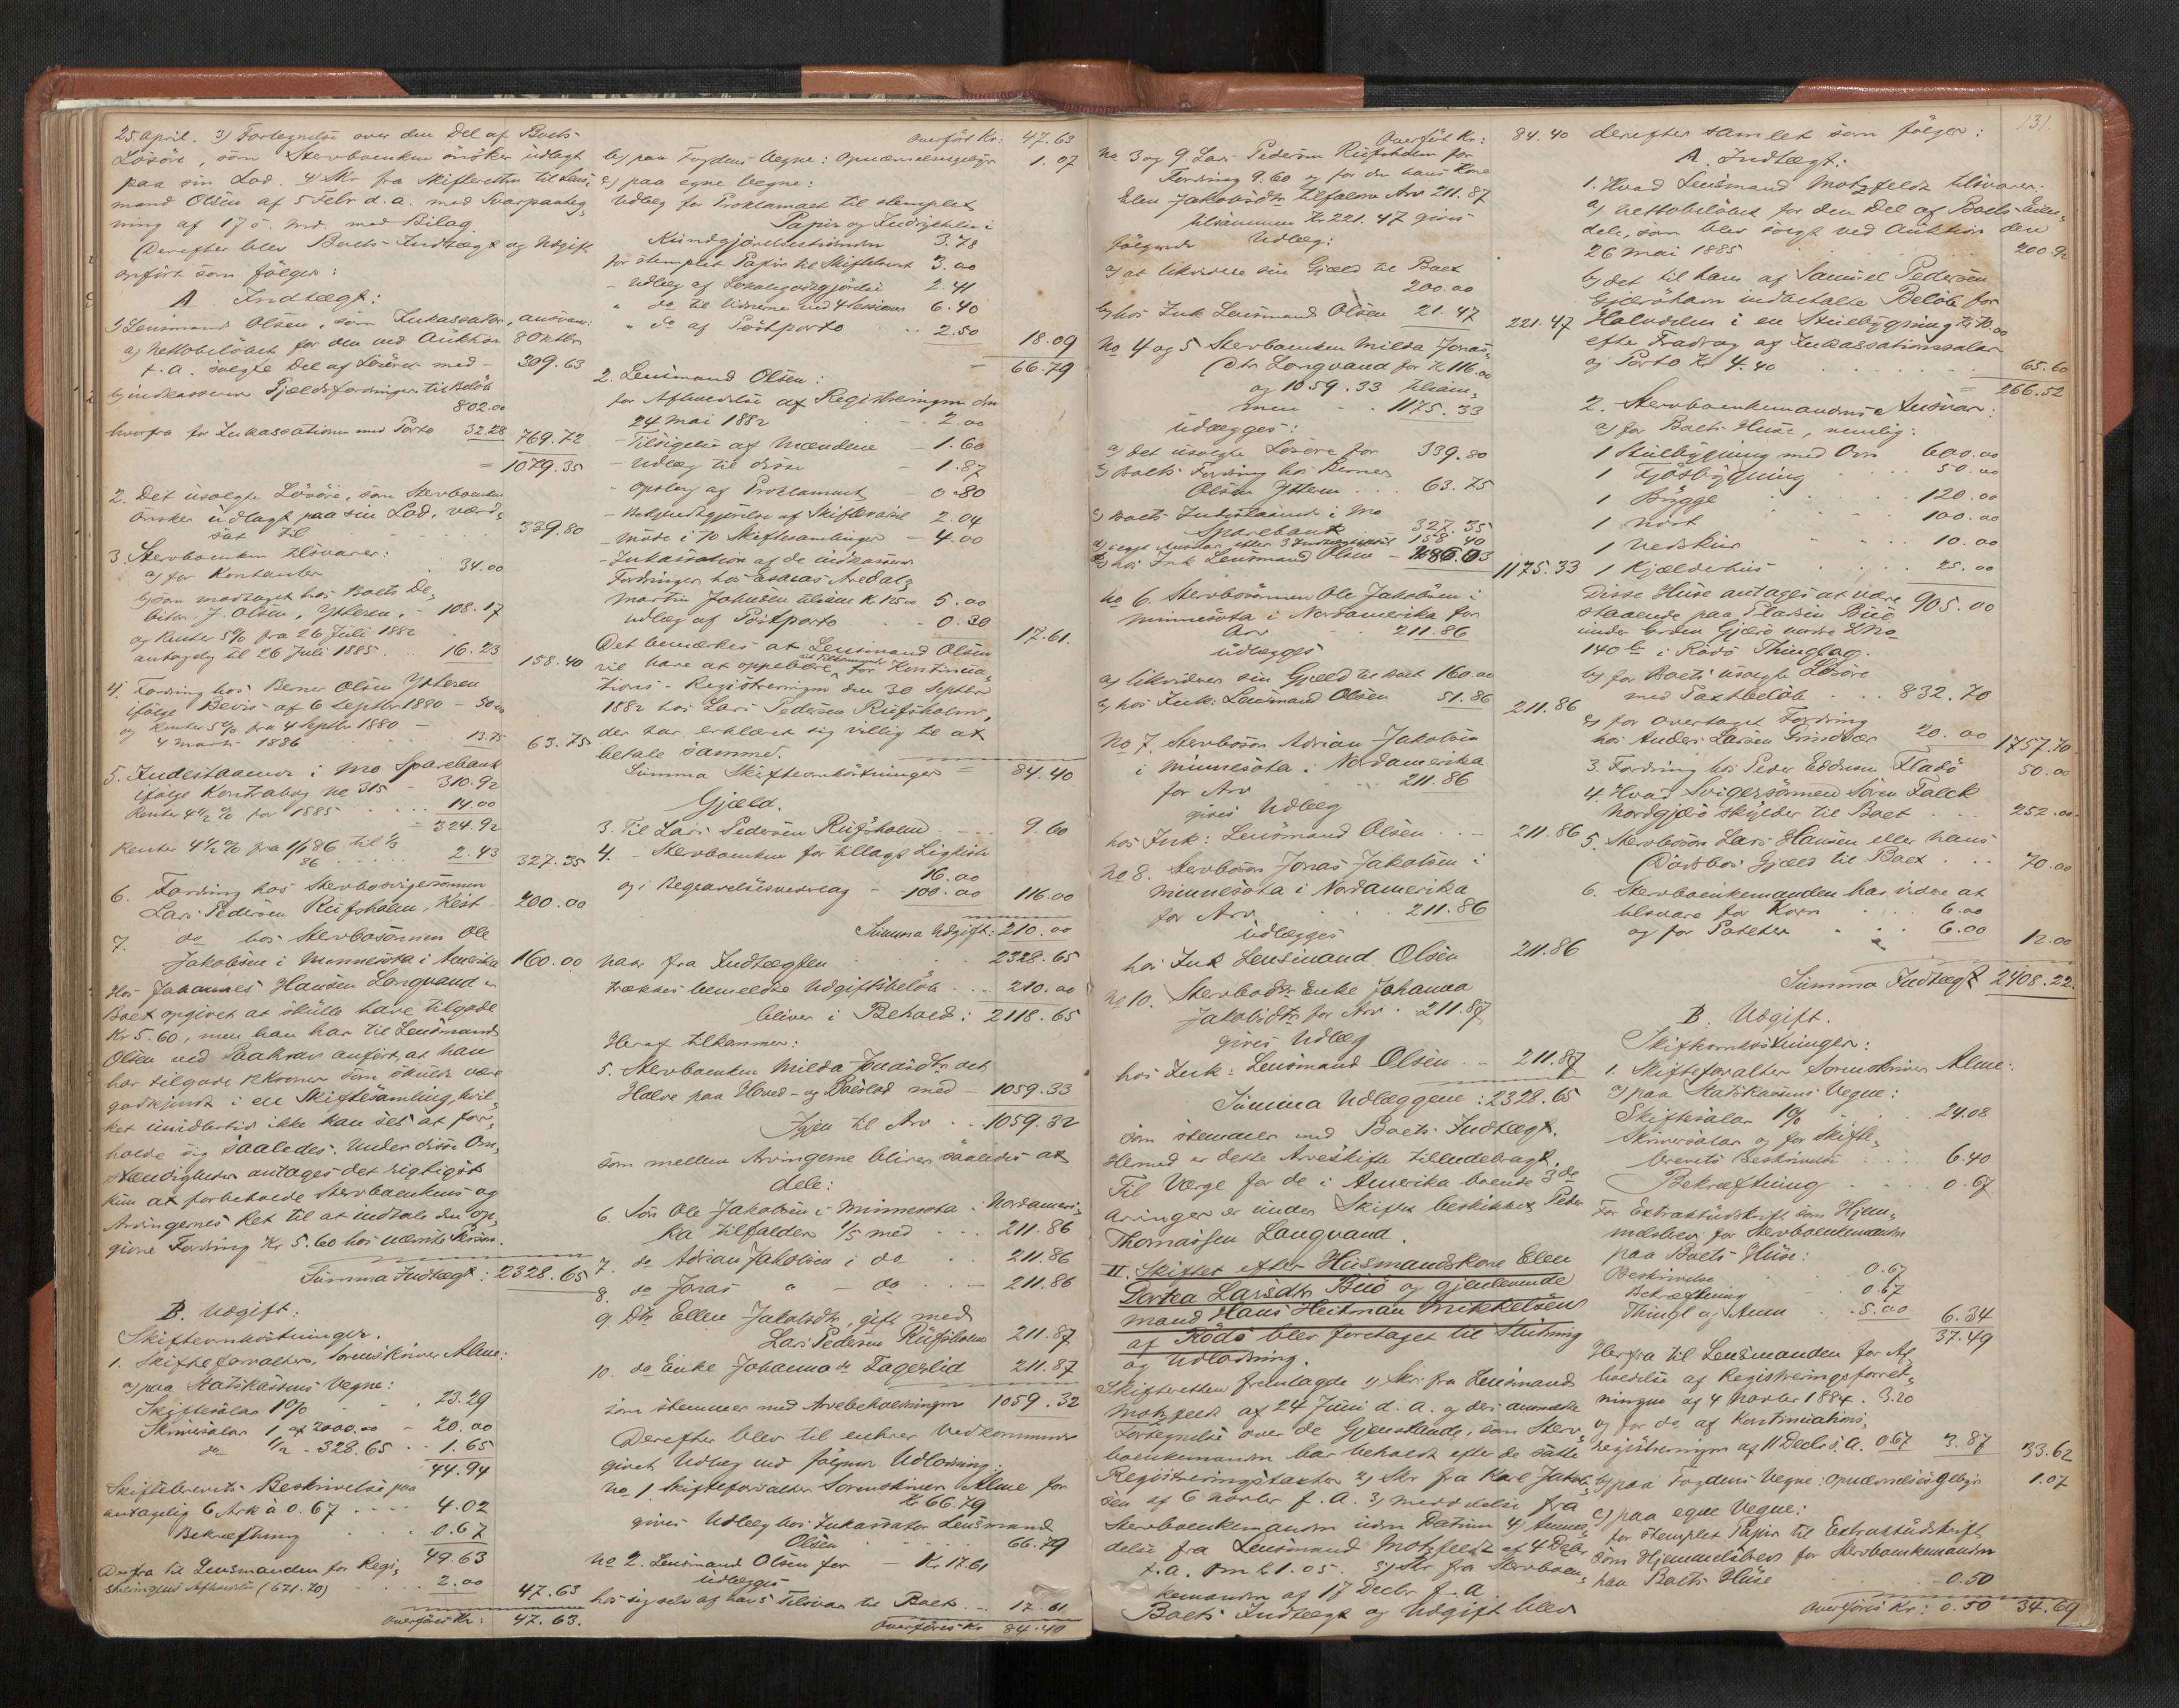 25 April. 3) Fortegnelse over den Del af Boets
Løsøre, som Stervboenken ønsker udlagt
paa sin Lod. 4) Skr fra Skifteretten til Lens-
mand Olsen af 5 Febr d. a. med Svarpaateg-
ning af 17 s. Md. med Bilag.
Derefter blev Boets Indtægt og Udgift
opført som følger:
A. Indtægt:
1) Lensmand Olsen, som Inkassator, ansvar:
a) Nettobeløbet for den ved Auktion 8 Oktbr
f. A. solgte Del af Løsøre med – 309.63
b) indkasserede Gjældsfordringer til Beløb
802.00
hvorfra for Inkassationen med Porto 32.28 769.72
= 1079.35
2. Det usolgte Løsøre, som Stervboenken
ønsker udlagt paa sin Lod, værd-
sat til 339.80
3. Stervboenken tilsvarer:
a) for Kontanter 34.00
b) som modtaget hos Boets De-
bitor J. Olsen, Ytteren, – 108.17
og Renter 5% fra 26 Juli 1882
antagelig til 26 Juli 1885 . . 16.23 158.40
4. Fordring hos Berner Olsen Ytteren
ifølge Bevis af 6 Septbr 1880 – 50.00
og Renter 5% fra 4 Septbr 1880 –
4 Marts 1886 13.75 63.75
5. Indestaaende i Mo Sparebank
ifølge Kontrabog No 315 – 310.92
Renter 4½ % for 1885 14.00
= 324.92
Renter 4½ % fra 1/1 86 til 1/3
86 2.43 327.35
6. Fordring hos Stervbosvigersønnen
Lars Pedersen Rufsholm, Rest 200.00
7. do hos Stervbosønnen Ole
Jakobsen i Minnesota i Amerika 160.00
Hos Johannes Hansen Langvand er
Boet opgivet at skulle have tilgode
Kr 5.60, men han har til Lensmand
Olsen ved Paakrav anført, at han
har tilgode 12 Kroner som skulde være
godkjendt i en Skiftesamling, hvil-
ket imidlertid ikke kan sees at for-
holde sig saaledes. Under disse Om-
stændigheder antages det rigtigst
kun at forbeholde Stervboenken og
Arvingernes Ret til at indtale den op-
givne Fordring Kr 5.60 hos nævnte Person.
Summa Indtægt: 2328.65
B. Udgift:
Skifteomkostninger.
1. Skifteforvalteren, Sorenskriver Alme:
a) paa Statskassens Vegne:
Skiftesalær 1% 23.29
Skriversalær 1 af 2000.00 – 20.00
do ½ – 328.65 . . 1.65
44.94
Skiftebrevets Beskrivelse paa
antagelig 6 Ark à 0.67 . . . . 4.02
Bekræftning 0.67
49.63
Derfra til Lensmanden for Regi-
streringens Afholdelse (671.70) 2.00 47.63
Overføres Kr: 47.63.
Overført Kr: 47.63
b) paa Fogdens Vegne: Opnævnelsesgebyr 1.07
c) paa egne Vegne:
Udlæg for Proklamaet til stemplet
Papir og Indrykkelse i
Kundgjørelsestidende 3.78
for stemplet Papir til Skiftebrevet 3.00
– Udlæg af Lokalegodtgjørelse 2.41
" do til Vidnerne ved 4 Sessioner 6.40
" do af Postporto . . 2.50 18.09
= 66.79
2. Lensmand Olsen:
for Afholdelse af Registreringen den
24 Mai 1882 – 2.00
– Tilsigelse af Mændene – 1.60
– Udlæg til disse – 1.87
– Opslag af Proklamaet – 0.80
– Bekjendtgjørelse af Skiftevarsel 2.04
– Møde i 10 Skiftesamlinger – 4.00
– Inkassation af de inkasserede
Fordringer hos Esaias Aredal og
Martin Johnsen tilsam. Kr 125.00 5.00
Udlæg af Postporto . . . 0.30 17.61.
Det bemærkes at Lensmand Olsen
vil have at oppebære for Kontinua-
tions-Registreringen den 30 Septbr
1882 hos Lars Pedersen Rufsholm,
der har erklæret sig villig til at
betale samme.
Summa Skifteomkostninger = 84.40
Gjæld.
3. Til Lars Pedersen Rufsholm . . 9.60
4. – Stervboenken for tillagt Ligkiste
16.00
og i Begravelsesvederlag – 100.00 116.00
Summa Udgift: 210.00
naar fra Indtægten 2328.65
trækkes bemeldte Udgiftsbeløb . . . 210.00
bliver i Behold: 2118.65
Heraf tilkommer:
5. Stervboenken Milda Jonasdtr det
Halve paa Hoved- og Boeslod med – 1059.33
Igjen til Arv . . 1059.32
som mellem Arvingerne bliver saaledes at
dele:
6. Søn Ole Jakobsen i Minnesota i Nordameri-
ka tilfalder 1/5 med . . . 211.86
7. do Adrian Jakobsen i do . . 211.86
8. do Jonas " – do . . . – 211.86
9. Dtr Ellen Jakobsdtr, gift med
Lars Pedersen Rufsholm 211.87
10. do Enke Johanna do Fagerlid 211.87
som stemmer med Arvebeholdningen 1059.32
Derefter blev til enhver Vedkommende
givet Udlæg ved følgende Udlodning:
No 1. Skifteforvalter Sorenskriver Alme for
Kr 66.79
gives Udlæg hos Inkassator Lensmand
Olsen 66.79
No 2. Lensmand Olsen for – Kr 17.61
udlægges
hos sig selv af hans Tilsvar til Boet . . 17.61
Overføres Kr 84.40
Overført Kr: 84.40
No 3 og 9 Lars Pedersen Rufsholm for
Fordring 9.60 og for den hans Kone
Elen Jakobsdtr tilfaldne Arv 211.87
tilsammen Kr 221.47 gives
følgende Udlæg:
a) at likvidere sin Gjæld til Boet
200.00
b) hos Ink Lensmand Olsen 21.47 221.47
No 4 og 5 Stervboenken Milda Jonas-
dtr Langvand for Kr 116.00
og 1059.33 tilsam-
men . . 1175.33
udlægges:
a) det usolgte Løsøre for 339.80
b) Boets Fordring hos Berner
Olsen Ytteren . . . 63.75
c) Boets Indestaaende i Mo
Sparebank – 327.35
d) eget Ansvar efter 3 Indtægtspost 158.40
e) hos Ink Lensmand Olsen – 286.03 1175.33
No 6. Stervbosønnen Ole Jakobsen i
Minnesota i Nordamerika for
Arv 211.86
udlægges
a) likviderer sin Gjæld til Boet 160.00
b) hos Ink: Lensmand Olsen 51.86 211.86
No 7. Stervbosøn Adrian Jakobsen
i Minnesota i Nordamerika
for Arv 211.86
gives Udlæg
hos Ink: Lensmand Olsen . . – 211.86
No 8. Stervbosøn Jonas Jakobsen i
Minnesota i Nordamerika
for Arv 211.86
udlægges
hos Ink Lensmand Olsen 211.86
No 10. Stervbodtr Enke Johanna
Jakobsdtr for Arv . 211.87
gives Udlæg
hos Ink: Lensmand Olsen . . – 211.87
Summa Udlæggene: 2328.65
som stemmer med Boets Indtægt.
Hermed er dette Arveskifte tilendebragt.
Til Værge for de i Amerika boende 3de
Arvinger er under Skiftet beskikket Peder
Thomassen Langvand.
II. Skiftet efter Husmandskone Elen
Dortea Larsdtr Buø og gjenlevende
Mand Hans Heitman Mikkelsen
af Rødø blev foretaget til Slutning
og Udlodning.
Skifteretten fremlagde 1) Skr fra Lensmand
Motzfeldt af 24 Juni d. A. og deri anmeldte
Fortegnelse over de Gjenstande, som Sterv-
boenkemanden har beholdt efter de satte
Registreringstaxter 2) Skr fra Karl Jakob-
sen af 6 Novbr f. A. 3) Meddelelse fra
Stervboenkemanden uden Datum 4) Anmel-
delse fra Lensmand Motzfeldt af 4 Decbr
f. A. om Kr 1.05. 5) Skr fra Stervboen-
kemanden af 17 Decbr f. A.
Boets Indtægt og Udgift blev
131.
derefter samlet som følger:
A. Indtægt:
1. Hvad Lensmand Motzfeldt tilsvarer:
a) Nettobeløbet for den Del af Boets Eien-
dele, som blev solgt ved Auktion den
26 Mai 1885 200.92
b) det til ham af Samuel Pedersen
Gjærøhavn indbetalte Beløb for
Halvdelen i en Stuebygning Kr 70.00
efter Fradrag af Inkassationssalær
og Porto Kr 4.40 65.60
= 266.52
2. Stervboenkemandens Ansvar:
a) for Boets Huse, nemlig:
1 Stuebygning med Ovn 600.00
1 Fjøsbygning . . . 50.00
1 Brygge . . . 120.00
1 Nøst . . . 100.00
1 Vedskur . . . 10.00
1 Kjælderhus . . . 25.00
Disse Huse antages at være 905.00
staaende paa Pladsen Buø
under Gaarden Gjærø nordre L No
140 b i Rødø Thinglag.
b) for Boets usolgte Løsøre
med Taxtbeløb . . . 832.70
c) for overtaget Fordring
hos Anders Larsen Grindvær 20.00 1757.70
3. Fordring hos Peder Eddum Fladø 50.00
4. Hvad Svigersønnen Søren Falck
Nordgjærø skylder til Boet . . . 252.00
5. Stervbosøn Lars Hansen eller hans
Dødsbos Gjæld til Boet . . . 70.00
6. Stervboenkemanden har videre at
tilsvare for Korn . . . 6.00
og for Poteter . . . 6.00 12.00
Summa Indtægt 2408.22.
B. Udgift.
Skifteomkostninger:
1. Skifteforvalter Sorenskriver Alme:
a) paa Statskassens Vegne:
Skiftesalær 1% 24.08
Skriversalær og for Skifte-
brevets Beskrivelse . . . 6.40
Bekræftning . . . 0.67
For Extraktudskrift som Hjem-
melsbrev for Stervboenkemanden
paa Boets Huse:
Beskrivelse 0.67
Bekræftning 0.67
Thingl og Anm . . 5.00 6.34
37.49
Herfra til Lensmanden for Af-
holdelse af Registreringsforret-
ningen af 4 Novbr 1884 . 3.20
og for do af Kontinuations-
registreringen af 11 Decbr s. A. 0.67 3.87 33.62
b) paa Fogdens Vegne: Opnævnelsesgebyr 1.07
c) paa egne Vegne:
for stemplet Papir til Extraktudskrift
som Hjemmelsbrev for Stervboenkemanden
paa Boets Huse 0.50
Overføres Kr: 0.50 34.69